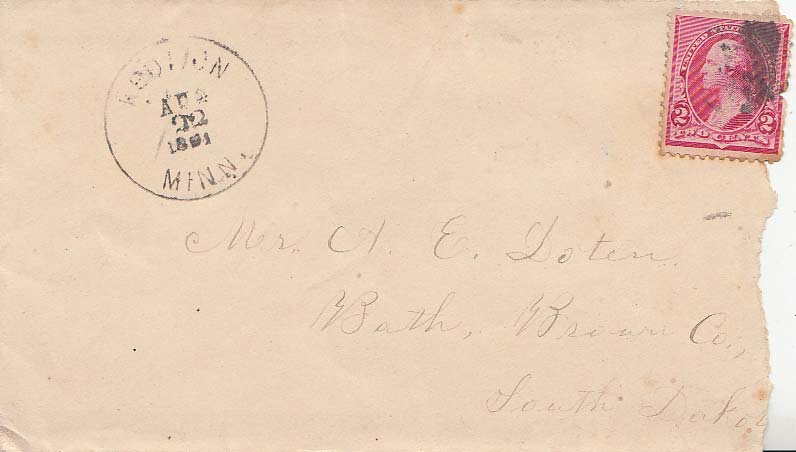 AUG
22
1891
MINN.
UNITED STATES
2 2
TWO CENTS
Mr. A. E. Doten
Bath, Brown Co.,
South Dako